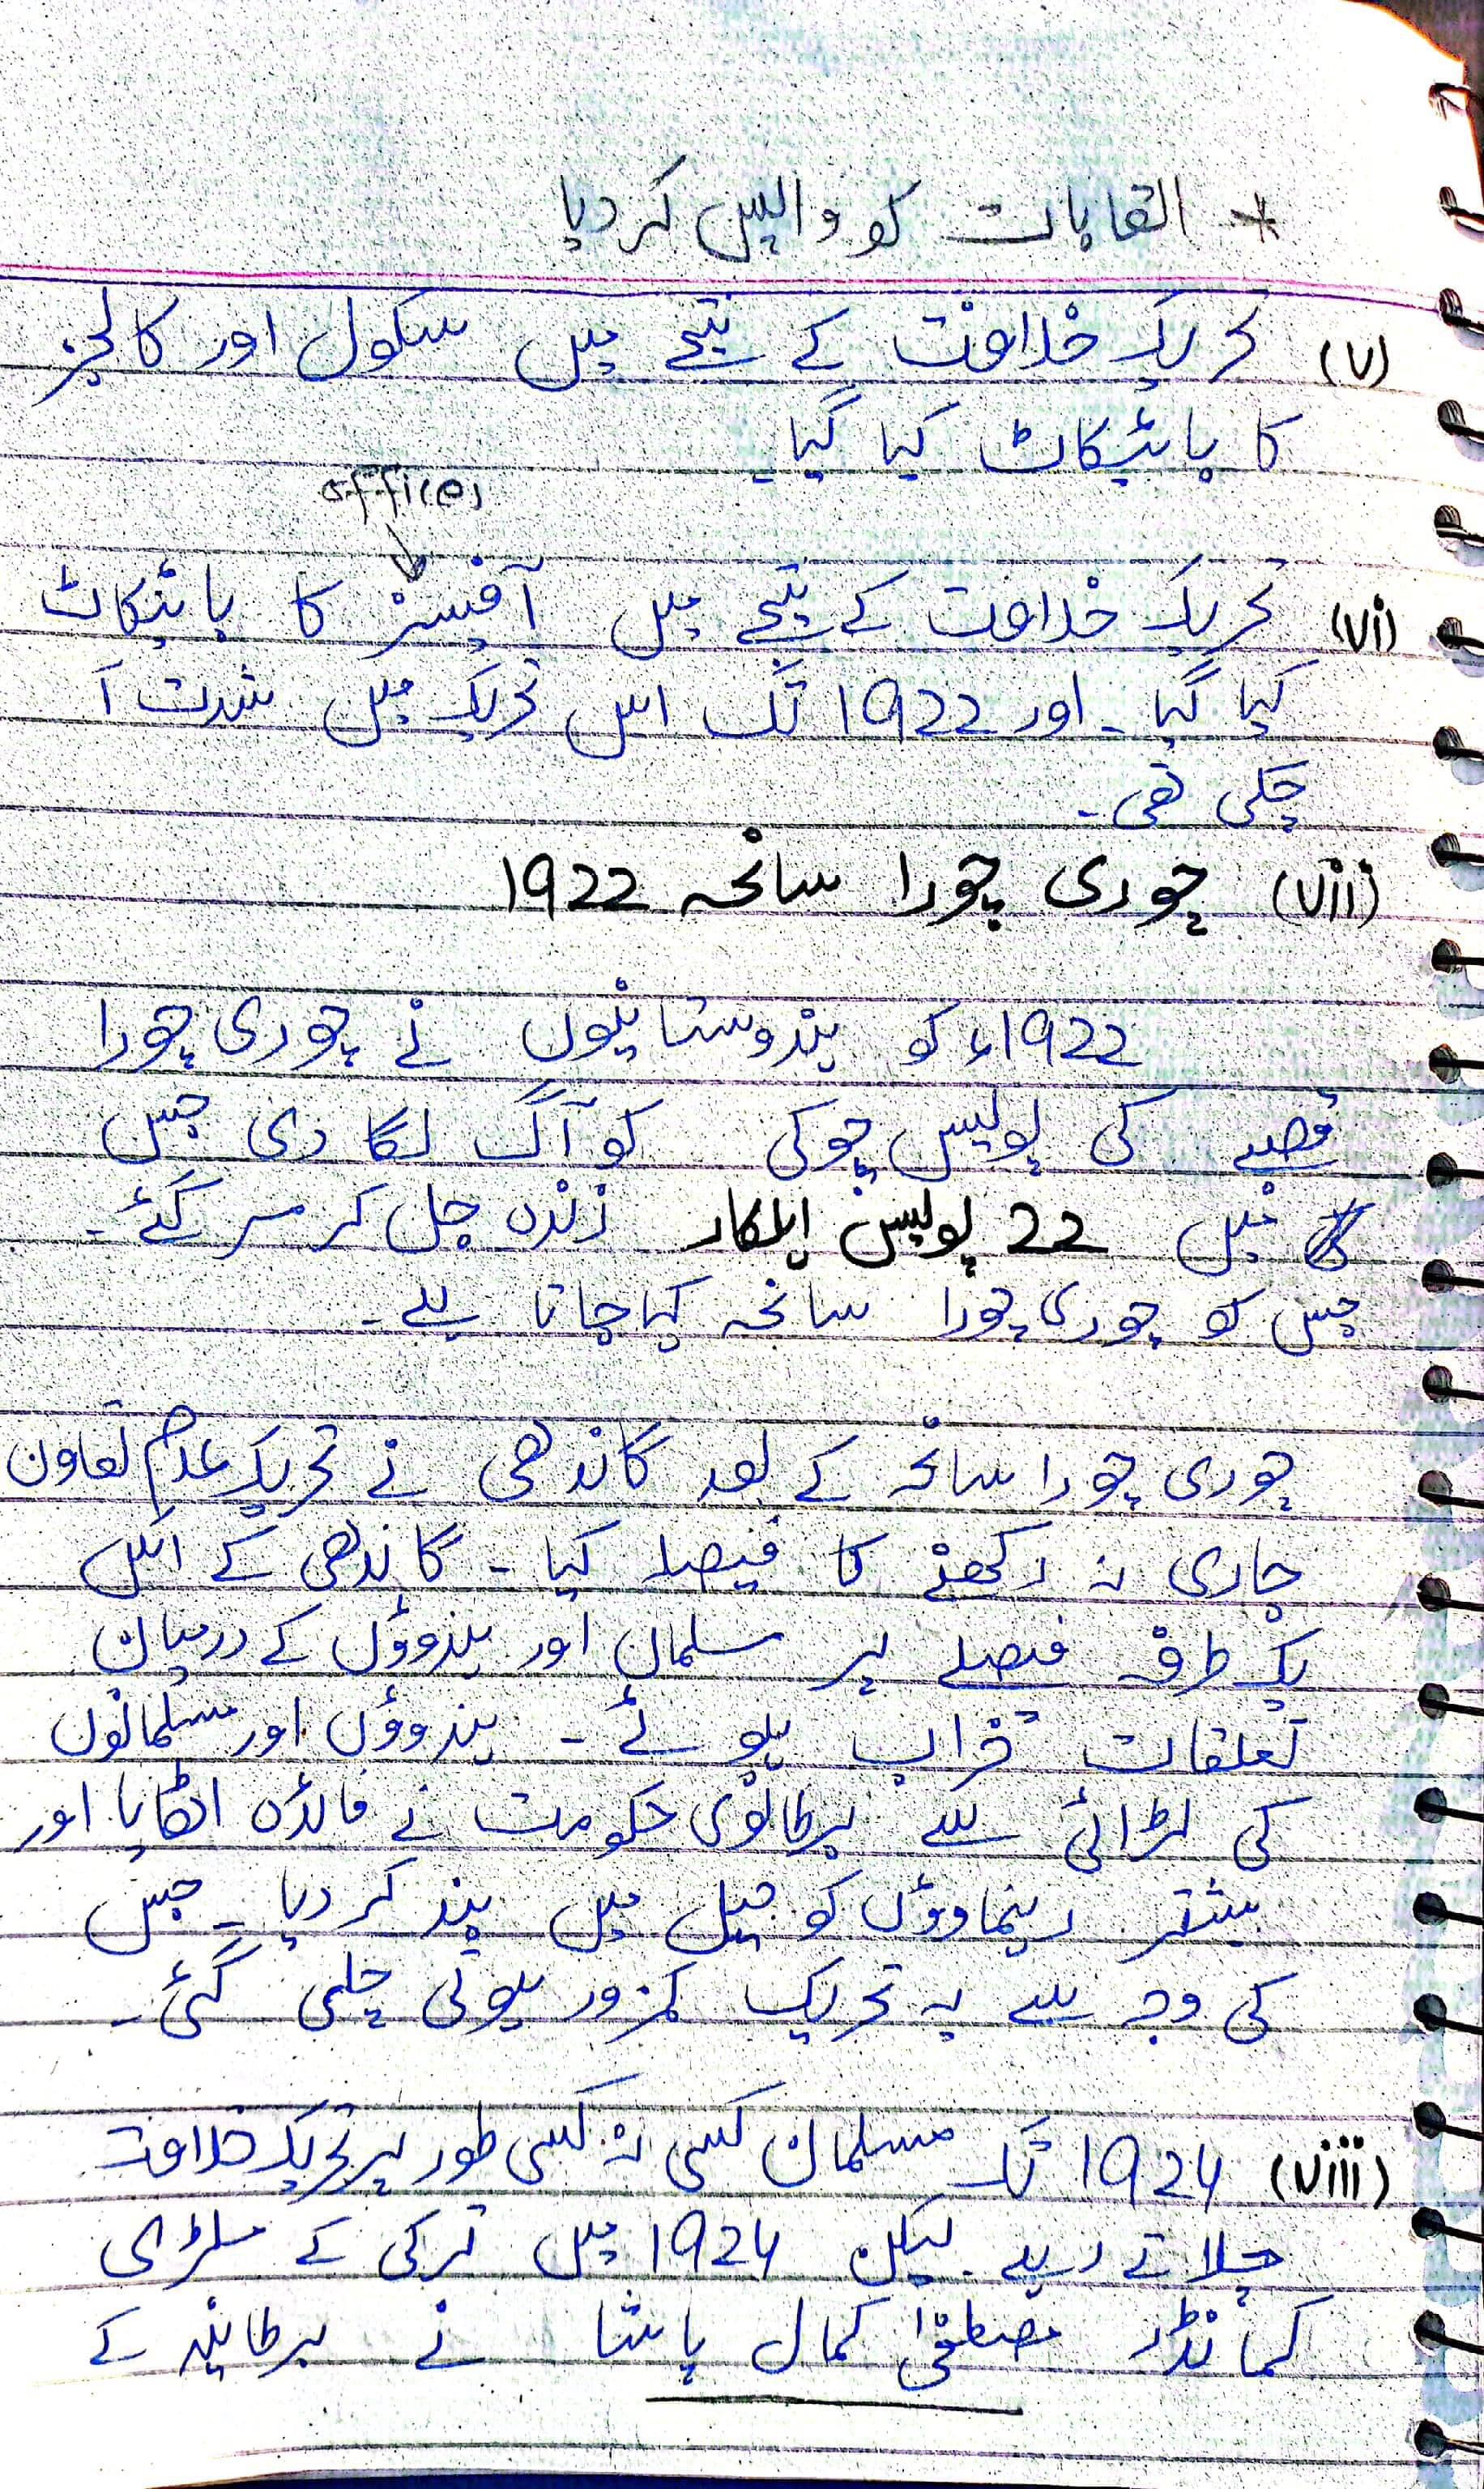 * القابات کو واپس کر دیا
(v) تحریک خلافت کے نتیجے میں سکول اور کالجز
کا بائیکاٹ کیا گیا۔
offices
(vi) تحریک خلافت کے نتیجے میں آفیسز کا بائیکاٹ
کیا گیا۔ اور 1922 تک اس تحریک میں شدت آ
چکی تھی۔
(vii) چوری چورا سانحہ 1922
1922ء کو ہندوستانیوں نے چوری چورا
قصبے کی پولیس چوکی کو آگ لگا دی جس
میں 22 پولیس اہلکار زندہ جل کر مر گئے۔
جس کو چوری چورا سانحہ کہا جاتا ہے۔
چوری چورا سانحہ کے بعد گاندھی نے تحریک عدم تعاون
جاری نہ رکھنے کا فیصلہ کیا۔ گاندھی کے اس
یک طرفہ فیصلے پر مسلمان اور ہندووؤں کے درمیان
تعلقات خراب ہوئے۔ ہندووؤں اور مسلمانوں
کی لڑائی سے برطانوی حکومت نے فائدہ اٹھایا اور
بیشتر رہنماووؤں کو جیل میں بند کر دیا۔ جس
کی وجہ سے یہ تحریک کمزور ہوتی چلی گئی۔
(viii) 1924 تک مسلمان کسی نہ کسی طور پر تحریک خلافت
چلاتے رہے۔ لیکن 1924 میں ترکی کے ملڑی
کمانڈر مصطفیٰ کمال پاشا نے برطانیہ کے